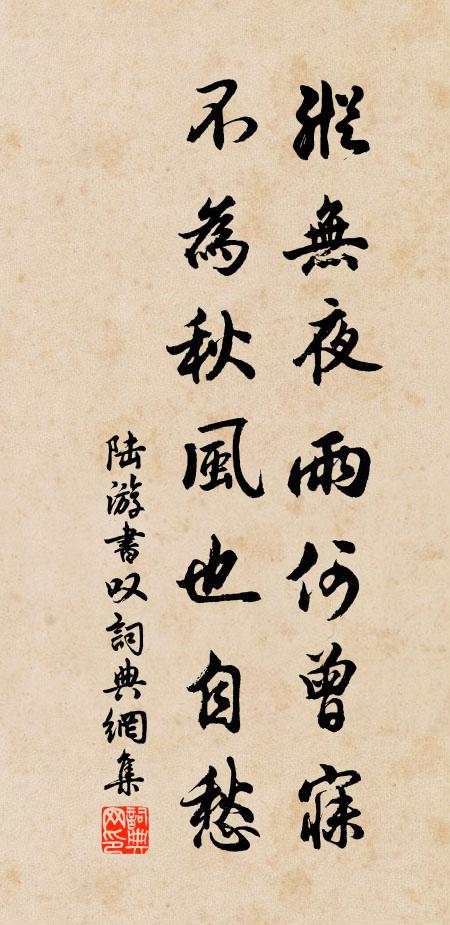 縱無夜雨何曾寐
不為秋風也自愁
陆游書叹詞典網集
詞典网印